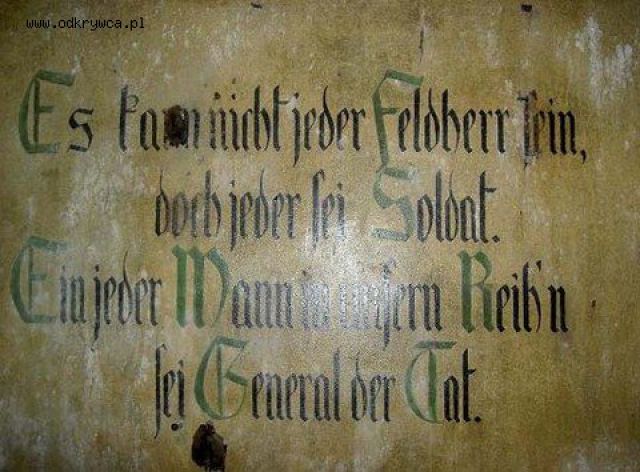 www.odkrywca.pl
Es kann nicht jeder Feldherr sein,
doch jeder sei Soldat.
Ein jeder Mann in unsern Reih'n
sei General der Tat.